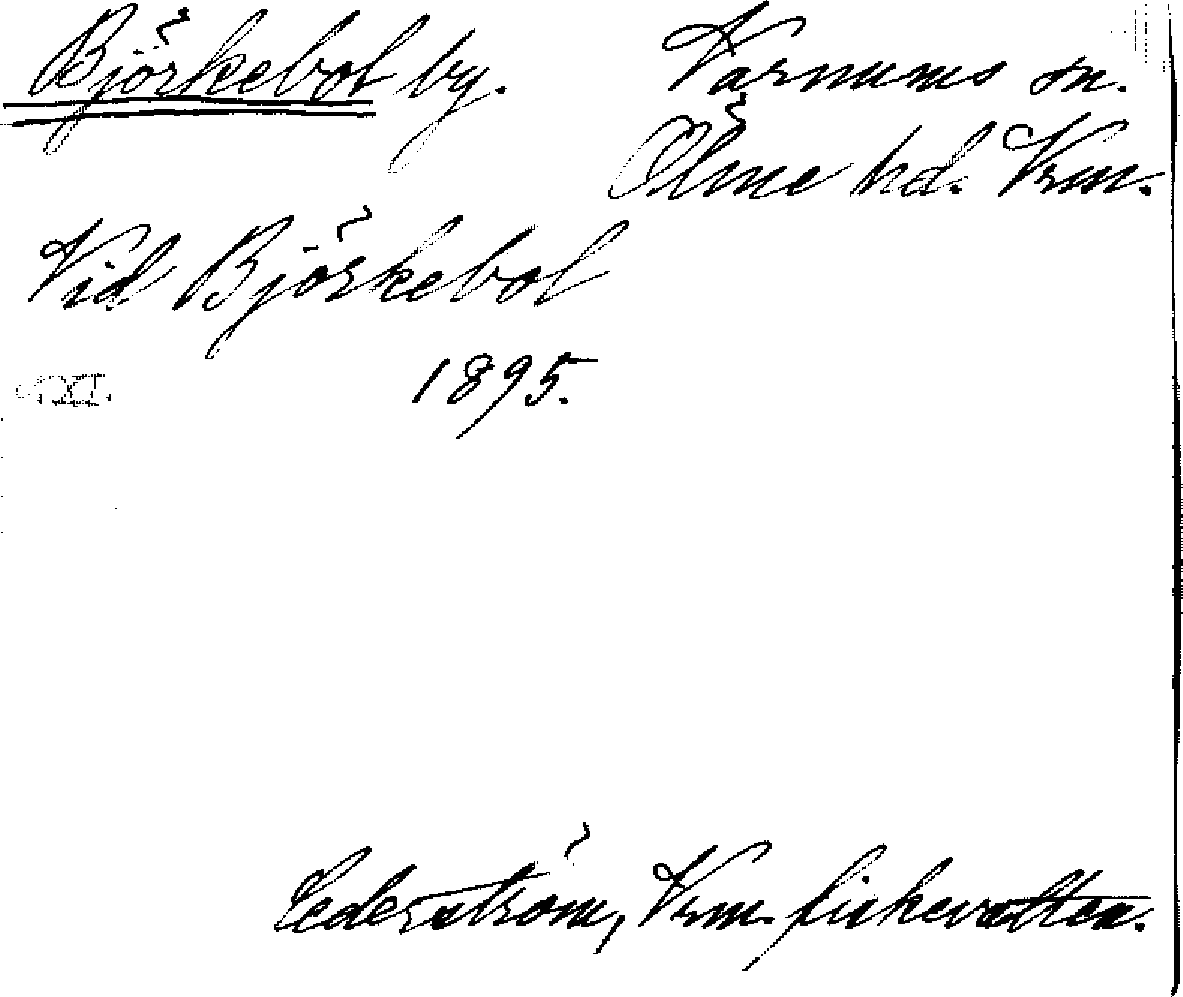 Björkebol by. Varnums sn.
Ölme hd. Vrm.
Vid Björkebol
1895.
Cederström, Vrm. fiskevatten.